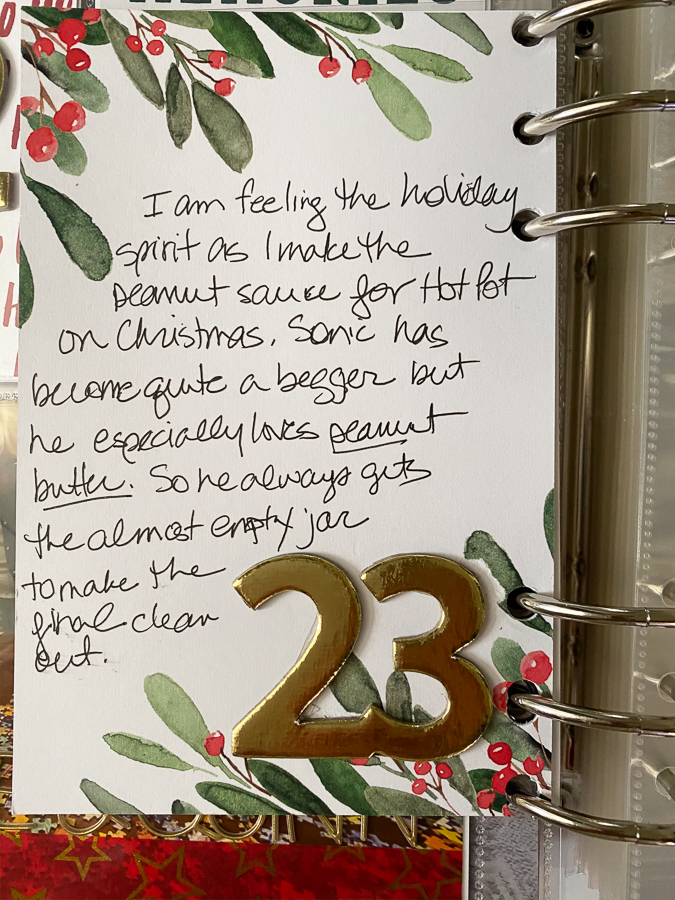 I am feeling the holiday
spirit as I make the
peanut sauce for Hot Pot
on Christmas. Sonic has
become quite a begger but
he especially loves peanut
butter. So he always gets
the almost empty jar
to make the
final clean
out.
23